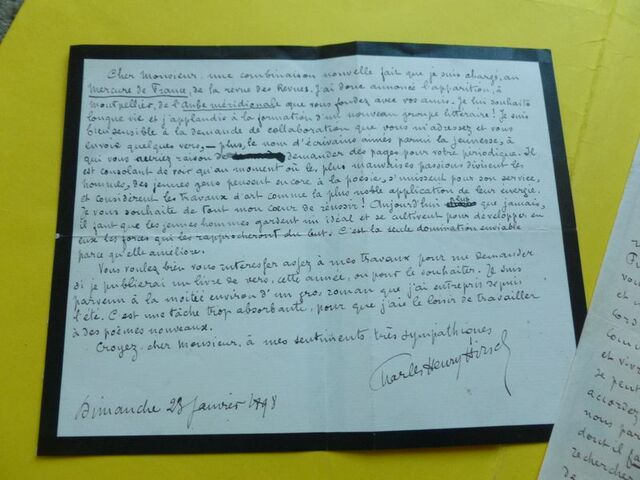 Cher Monsieur, une combinaison nouvelle fait que je suis chargé, au
Mercure de France, de la revue des Revues. J'ai donc annoncé l'apparition, à
Montpellier, de l'Aube méridionale que vous fondez avec vos amis. Je lui souhaite
longue vie et j'applaudis à la formation d'un nouveau groupe littéraire! Je suis
bien sensible à la demande de collaboration que vous m'adressez et vous
envoie quelques vers, — plus, le nom d'écrivains aimés parmi la jeunesse, à
qui vous auriez raison de demander des pages pour votre périodique. Il
est consolant de voir qu'au moment où les plus mauvaises passions divisent les
hommes, des jeunes gens pensent encore à la poésie, s'unissent pour son service,
et considèrent les travaux d'art comme la plus noble application de leur énergie.
Je vous souhaite de tout mon cœur de réussir! Aujourd'hui plus que jamais,
il faut que les jeunes hommes gardent un idéal et se cultivent pour développer en
eux les forces qui les rapprocheront du but. C'est la seule domination enviable
parce qu'elle améliore.
Vous voulez bien vous intéresser assez à mes travaux pour me demander
si je publierai un livre de vers, cette année, ou pour le souhaiter. Je suis
parvenu à la moitié environ d'un gros roman que j'ai entrepris depuis
l'été. C'est une tâche trop absorbante, pour que j'aie le loisir de travailler
à des poèmes nouveaux.
Croyez, cher Monsieur, à mes sentiments très sympathiques
Charles Henry Hirsch
Dimanche 23 janvier 1898
et vivre
je peux
accordez
nous par
dont il
recherche
de